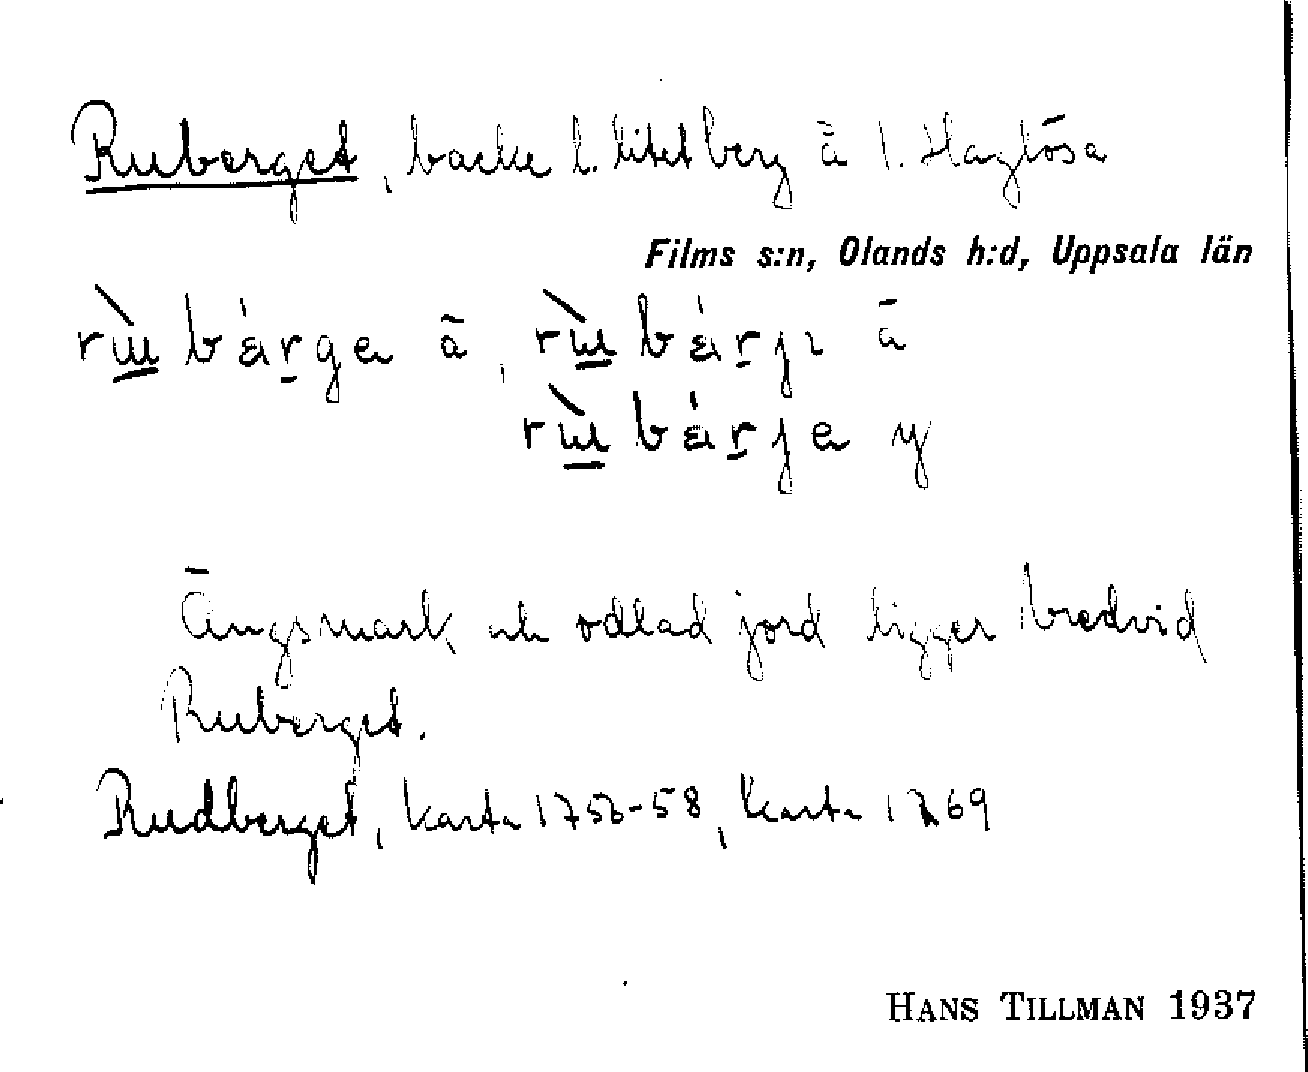 Ruberget, backe l. litet berg ä l. Haglösa
Films s:n, Olands h:d, Uppsala län
ä, ä
y
Ängsmark och odlad jord ligger bredvid
Ruberget.
Rudberget, karta 1756-58, karta 1769
HANS TILLMAN 1937